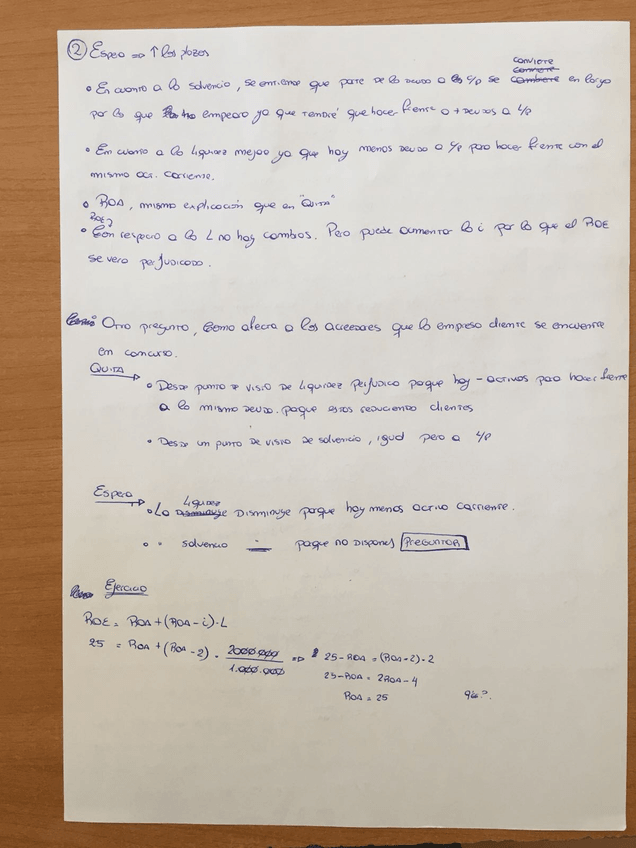 ② Espera => ↑ los plazos
• En cuanto a la solvencia, se entiende que parte de la deuda a c/p se convierte en largo
por lo que empeora ya que tendré que hacer frente a + deudas a l/p
• En cuanto a la liquidez mejora ya que hay menos deuda a c/p para hacer frente con el
mismo act. corriente.
• ROA, misma explicación que en "Quita"
ROE?
• Con respecto a la L no hay cambios. Pero puede aumentar la i por lo que el ROE
se vera perjudicado.
Otra pregunta, como afecta a los acreedores que la empresa cliente se encuentre
en concurso.
QUITA
• Desde punto de vista de liquidez perjudica porque hay - activos para hacer frente
a la misma deuda. porque estas reduciendo clientes
• Desde un punto de vista de solvencia, igual pero a l/p
Espera
• La liquidez Disminuye porque hay menos activo corriente.
• " solvencia porque no dispones PREGUNTAR
Ejercicio
ROE = ROA + (ROA - i) · L
25 = ROA + (ROA - 2) · 2000.000 / 1.000.000 => 25 - ROA = (ROA - 2) · 2
25 - ROA = 2ROA - 4
ROA = 25